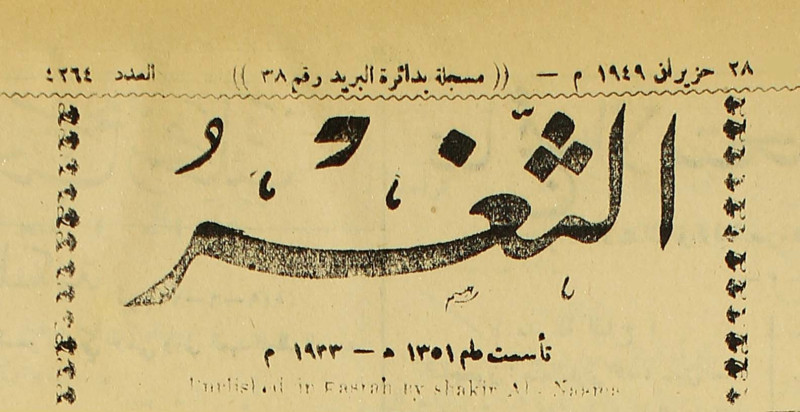 ٢٨ حزيران ١٩٤٩ م — (( مسجلة بدائرة البريد رقم ٣٨ )) العدد ٤٢٦٤
الثَّغْرُ
تأسست عام ١٣٥١ ه — ١٩٣٣ م
Published in Basrah by shakir Al-